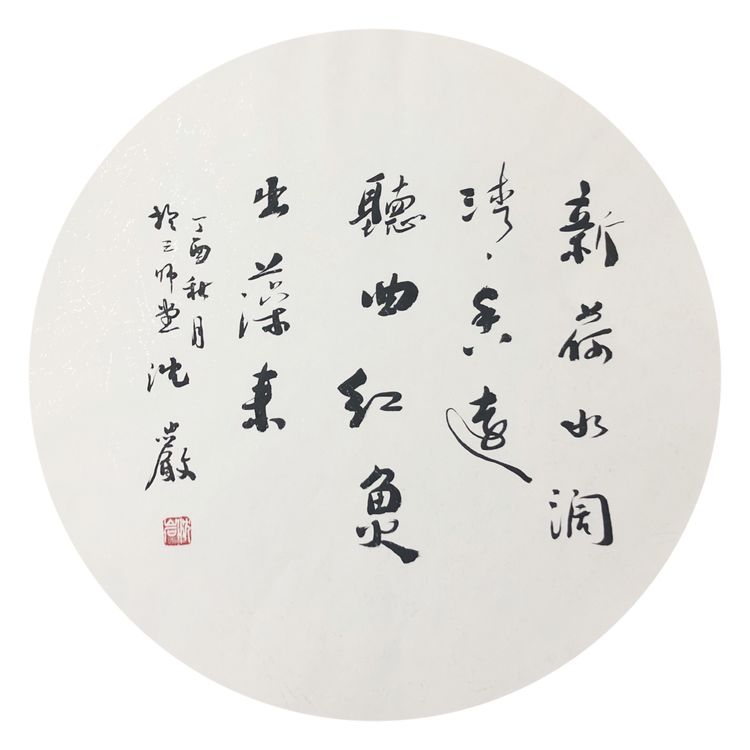 新荷水濶
清香遠
聽曲红魚
出藻来
丁酉秋月
於三师堂 沈巖